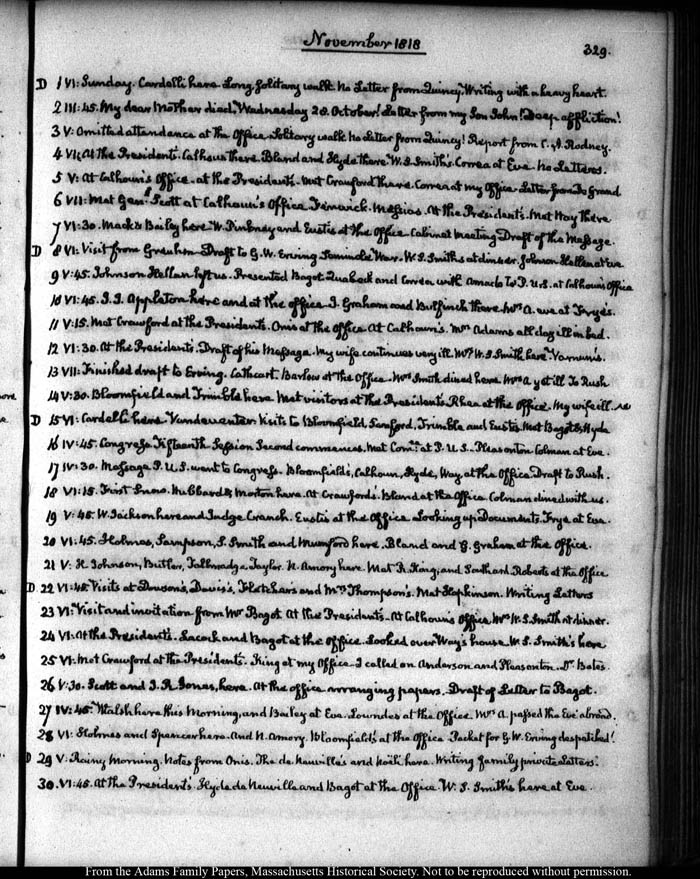 November 1818
329.
D 1 VI: Sunday. Cardelli here. Long solitary walk. No Letter from Quincy. Writing with a heavy heart.
2 III:45. My dear Mother died, Wednesday 28. October! Letter from my Son John! Deep affliction!
3 V: Omitted attendance at the Office. Solitary walk. No Letter from Quincy! Report from C. A. Rodney.
4 VI: At the Presidents. Calhoun there. Bland and Hyde there. W. S. Smith's. Correa at Eve. No Letters.
5 V: At Calhoun's Office. at the Presidents. Met Crawford there. Correa at my Office. Letter from De Grand
6 VII: Met Genl. Scott at Calhoun's Office. Fenwick. Messias. At the President's. Met Way there
7 VI:30. Mack & Bailey here. W. Pinkney and Eustis at the Office. Cabinet meeting. Draft of the Message.
D 8 VI: Visit from Graham. Draft to G. W. Erving. Seminole War. W. S. Smiths at dinner. Johnson Hellen at Eve
9 V:45. Johnson Hellen left us. Presented Bagot, Quabeck and Correa with Amado to P. U.S. at Calhouns Office
10 VI:45. J. I. Appleton here and at the office. J. Graham and Bulfinch there. Mrs A. eve at Frye's.
11 V:15. Met Crawford at the Presidents. Onis at the Office. At Calhoun's. Mrs Adams all day ill in bed.
12 VI:30. At the Presidents. Draft of his Message. My wife continues very ill. Mrs W. S. Smith here. Varnum's.
13 VII: Finished draft to Erving. Cathcart. Barlow at the Office. Mrs Smith dined here. Mrs A yet ill. To Rush
14 V:30. Bloomfield and Trimble here. Met visitors at the Presidents. Rhea at the Office. My wife ill.
D 15 VI: Cardelli here. Vandeventer. Visits to Bloomfield, Sanford, Trimble and Eustis. Met Bagot & Hyde
16 IV:45. Congress Fifteenth Session Second commences. Met Comee. at P. U.S. Pleasonton. Colman at Eve.
17 IV:30. Message P. U.S. sent to Congress. Bloomfield's, Calhoun, Hyde, Way, at the Office. Draft to Rush.
18 VI:15. First Snow. Hubbard & Morton here. At Crawford's. Bland at the Office. Colman dined with us.
19 V:45. W. Jackson here and Judge Cranch. Eustis at the Office. Looking up Documents. Frye at Eve.
20 VI:45. Holmes, Sampson, S. Smith and Mumford here. Bland and G. Graham at the Office.
21 V: H. Johnson, Butler, Tallmadge, Taylor. N. Amory here. Met R. King, and Southard. Roberts at the Office
D 22 VI:45. Visits at Dawson's, Davis's, Fletchers and Mrs Thompson's. Met Hopkinson. Writing Letters
23 VI: Visit and invitation from Mr Bagot. At the Presidents. At Calhoun's Office. Mrs W. S. Smith at dinner.
24 VI: At the Presidents. Lacock and Bagot at the Office. Looked over Way's house. W. S. Smith's here
25 VI: Met Crawford at the Presidents. King at my Office. I called on Anderson and Pleasonton. Dr Bates.
26 V:30. Scott and J. R. Jones, here. At the office arranging papers. Draft of Letter to Bagot.
27 IV:45. Walsh here this Morning, and Bailey at Eve. Lowndes at the Office. Mrs A. passed the Eve abroad.
28 VI: Holmes and Spencer here. And N. Amory. Bloomfield's at the Office. Packet for G. W. Erving despatched!
D 29 V: Rainy Morning. Notes from Onis. The de Neuville's and here. Writing family private Letters.
30. VI:45. At the Presidents. Hyde de Neuville and Bagot at the Office. W. S. Smiths here at Eve.
From the Adams Family Papers, Massachusetts Historical Society. Not to be reproduced without permission.